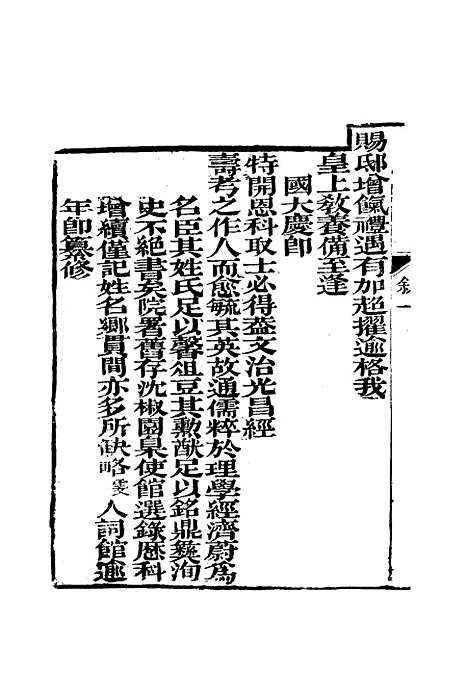 賜邸增餼禮遇有加超擢逾格我
皇上敎養備至逢
國大慶卽
特開恩科取士必得葢文治光昌經
壽考之作人而愈毓其英故通儒粹於理學經濟蔚爲
名臣其姓氏足以馨俎豆其勲猷足以銘鼎彝洵
史不絕書矣院署舊存沈椒園臬使館選錄歴科
增續僅記姓名鄉貫間亦多所缺略雯入詞館逾
年卽纂修
敘一